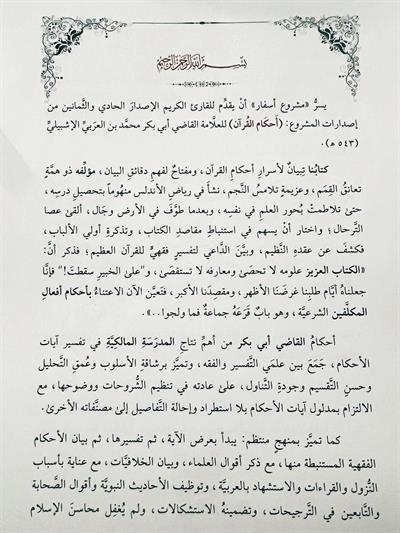 بسم الله الرحمن الرحيم
يسرُّ «مشروع أسفار» أنْ يقدِّم للقارئ الكريم الإصدارَ الحادي والثَّمانين من
إصدارات المشروع: (أَحكام القُرآن) للعلَّامة القاضي أبي بكر محمَّد بن العرَبيِّ الإشبيليِّ
(٥٤٣ هـ).
كتابُنا تِبيانٌ لأسرارِ أحكام القرآن، ومفتاحٌ لفهمِ دقائقِ البيان، مؤلِّفه ذو همَّةٍ
تعانقُ القِمَم، وعزيمةٍ تلامسُ النَّجم، نشأ في رياضِ الأندلس منهُوماً بتحصيلِ درسِه،
حتىٰ تلاطمتْ بُحور العلمِ في نفسِه، وبعدما طوَّف في الأرض وجَال، ألقىٰ عصا
التَّرحال؛ واختار أنْ يسهم في استنباطِ مقاصدِ الكتاب، وتذكرةِ أولي الألباب،
فكشَف عن عقدِهِ النَّظيم، وبيَّن الدَّاعي لتفسيرٍ فقهيٍّ للقرآن العظيم؛ فذكر أنَّ:
«الكتاب العزيز علومه لا تحصَىٰ ومعارفه لا تستقصَىٰ، و"علىٰ الخبيرِ سقطتَ!" فإنَّا
جعلناهُ أيَّام طلبِنا غرَضنَا الأظهر، ومقصدَنا الأكبر، فتعيَّن الآن الاعتناءُ بأحكام أفعالِ
المكلَّفين الشرعيَّة، وهو بابٌ قرَعَهُ جماعةٌ فما ولجوا..».
أحكامُ القاضي أبي بكر من أهمِّ نتاجِ المدرَسةِ المالكيَّةِ في تفسير آيات
الأحكام، جَمَعَ بين علمَي التَّفسير والفقه، وتميَّز برشاقةِ الأسلوب وعُمقِ التَّحليل
وحسنِ التَّقسيم وجودةِ التَّناول، علىٰ عادته في تنظيم الشُّروحات ووضوحها، مع
الالتزام بمدلول آيات الأحكام بلا استطراد وإحالة التَّفاصيل إلىٰ مصنَّفاته الأخرىٰ.
كما تميَّز بمنهجٍ منتظم: يبدأ بعرض الآية، ثم تفسيرها، ثم بيان الأحكام
الفقهية المستنبطة منها، مع ذكر أقوال العلماء، وبيان الخلافيَّات، مع عناية بأسباب
النُّزول والقراءات والاستشهاد بالعربيَّة، وتوظيف الأحاديث النبويَّة وأقوال الصَّحابة
والتَّابعين في التَّرجيحات، وتضمينهُ الاستشكالات، ولم يُغفِل محاسنَ الإسلام